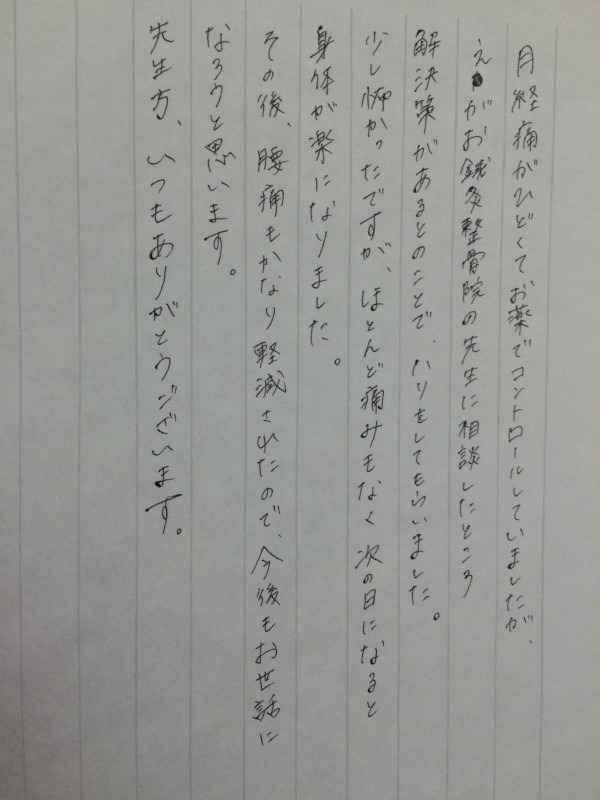 月経痛がひどくてお薬でコントロールしていましたが、
えがお鍼灸整骨院の先生に相談したところ
解決策があるとのことで、ハリをしてもらいました。
少し怖かったですが、ほとんど痛みもなく次の日になると
身体が楽になりました。
その後、腰痛もかなり軽減されたので、今後もお世話に
なろうと思います。
先生方、いつもありがとうございます。